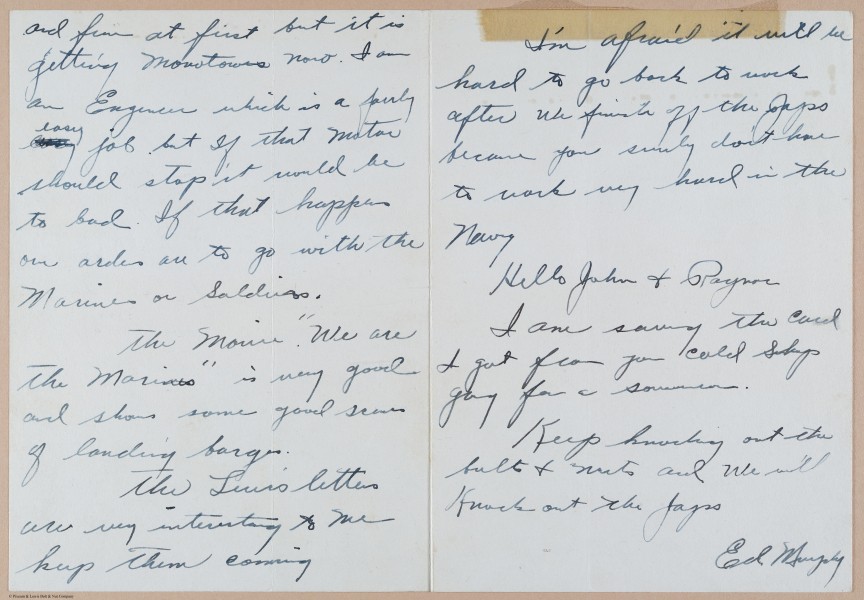 and fun at first but it is
getting Monotowus now. I am
an Engineer which is a fairly
easy
job but If that Motor
should stop it would be
to bad. If that happens
our orders are to go with the
Marines or Soldiers.
the Movie "We are
the Marines" is very good
and shows some good scenes
of landing barges.
The Lewis letters
are very interesting to me
keep them coming
I'm afraid it will be
hard to go back to work
after we finish off the Japs
because you surely don't have
to work very hard in the
Navy
Hello John & Raynor
I am saving the card
I got from you cold
guy for a souvenir.
Keep knocking out the
bolts & nuts and We will
Knock out the Japs
Ed Murphy